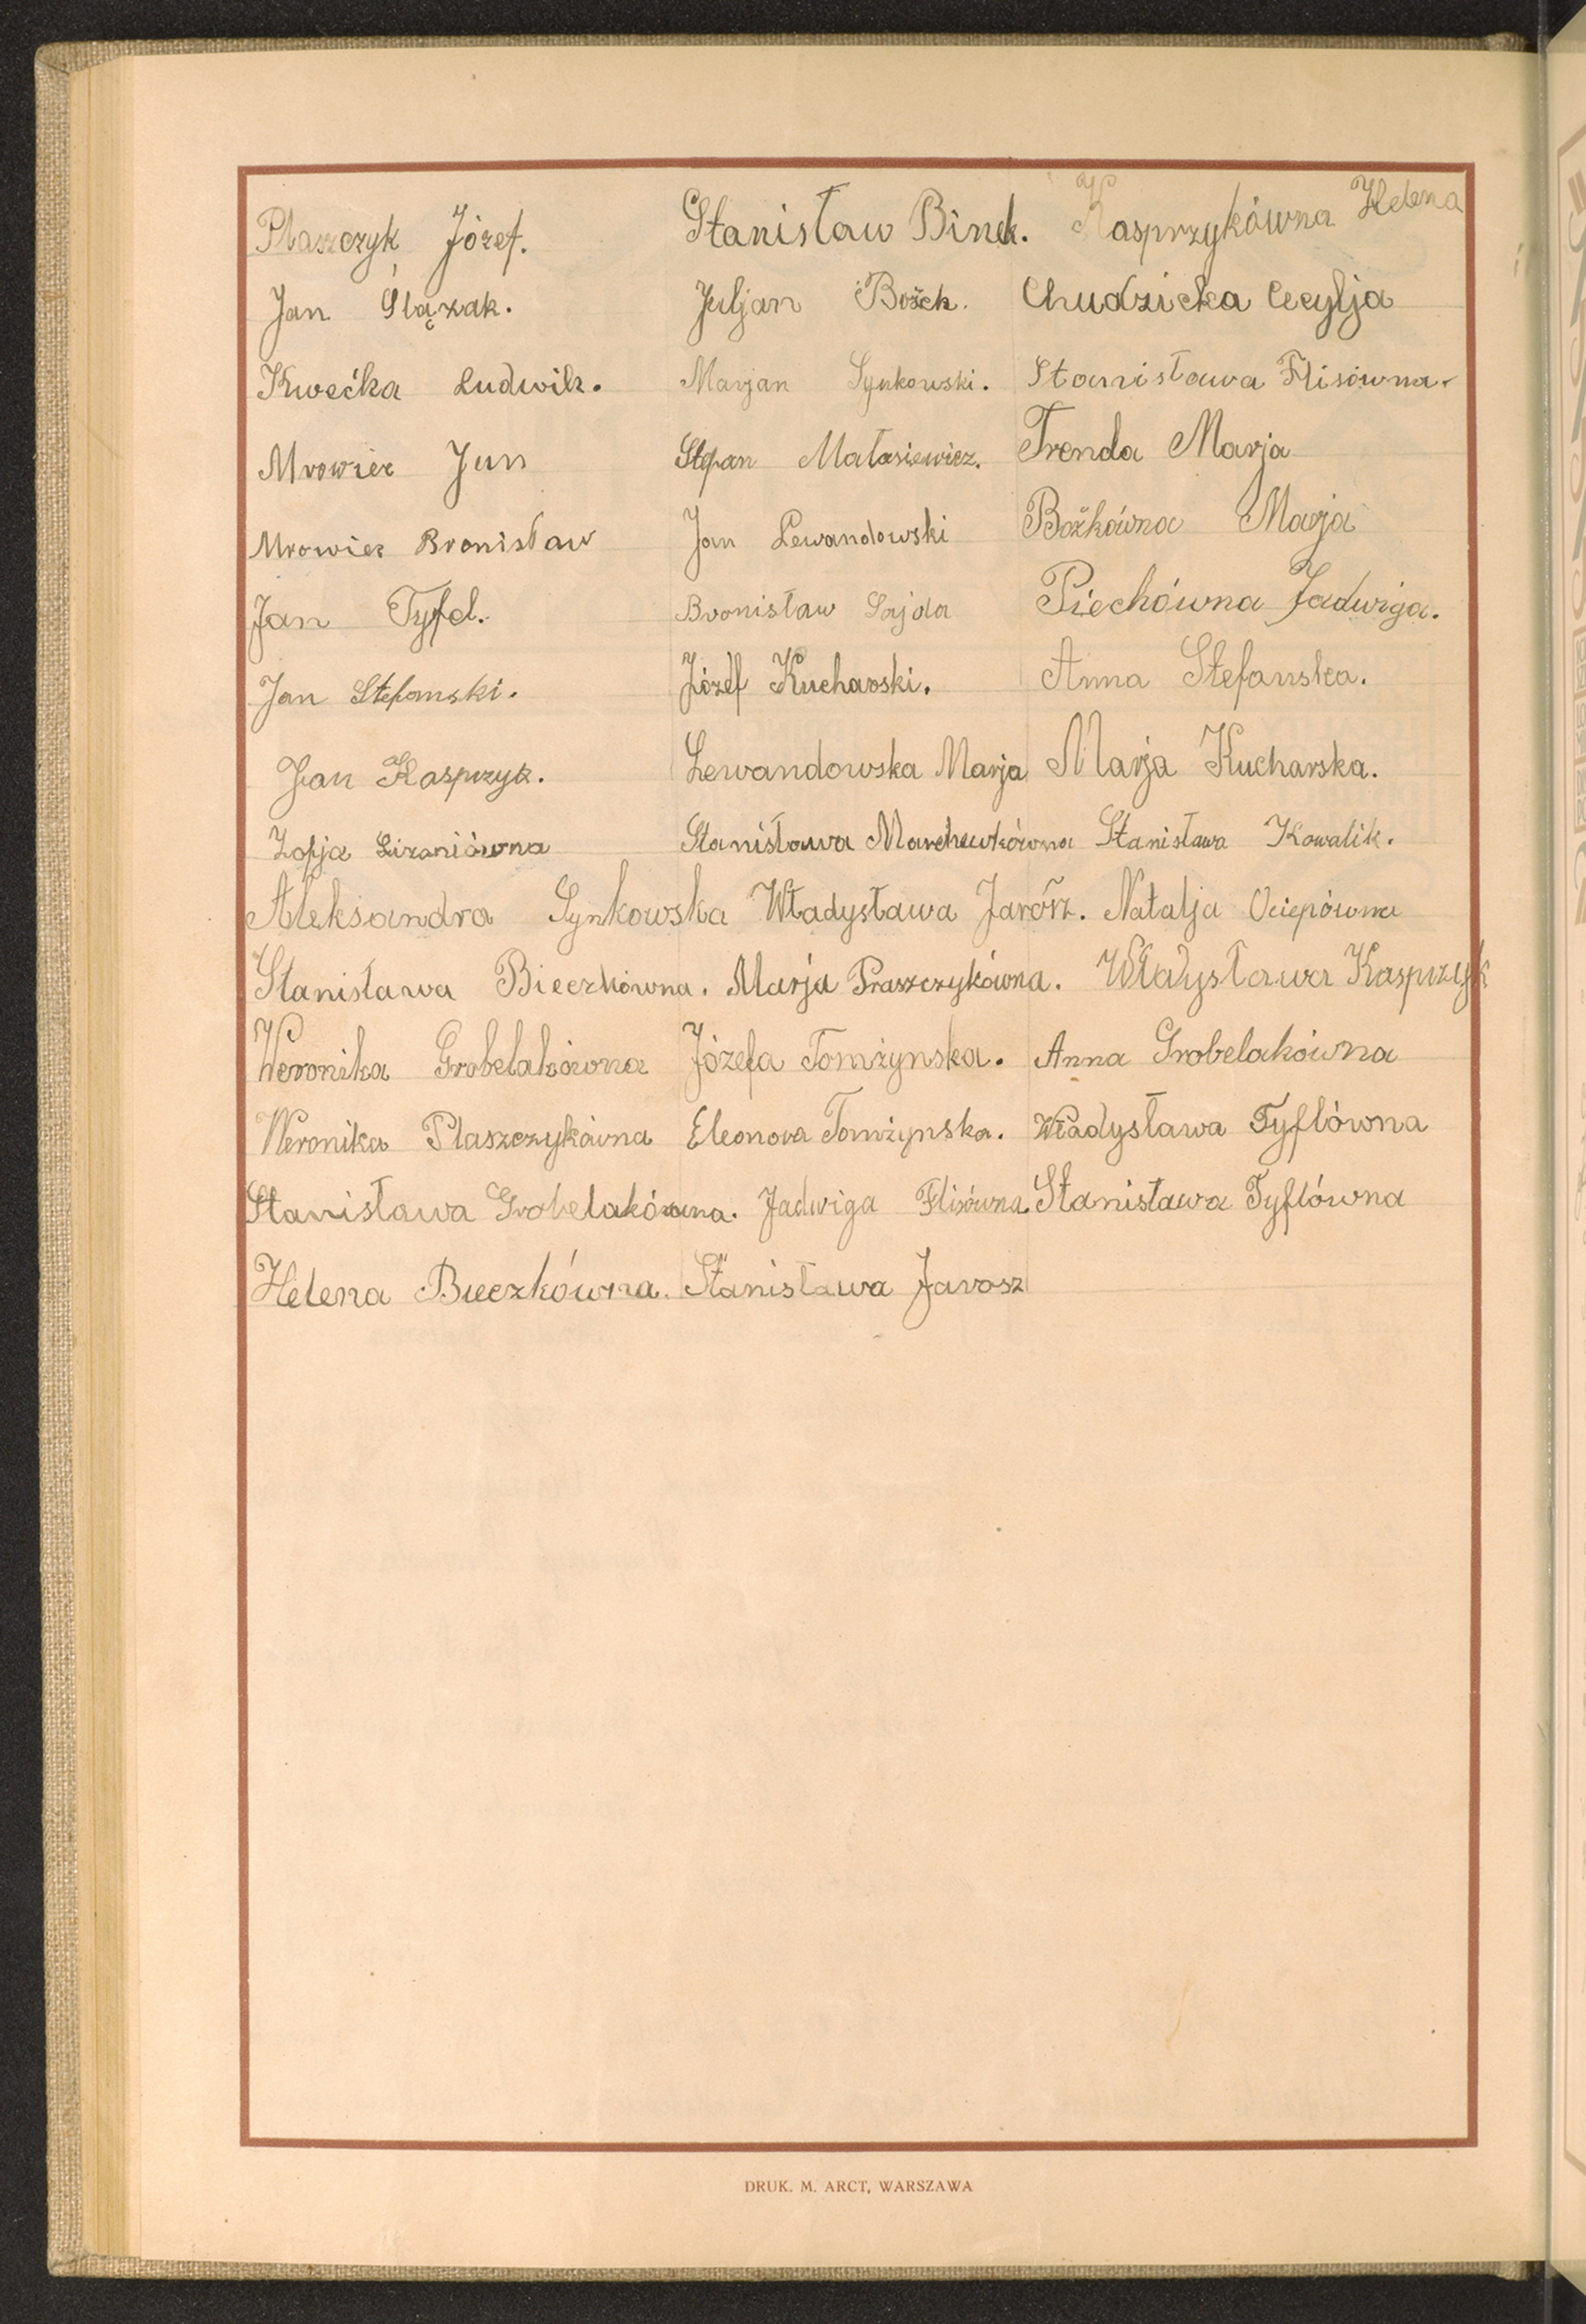 Płaszczyk Józef. Stanisław Binek. Kasprzykówna Helena
Jan Ślązak. Juljan Bożek. Chudzicka Cecylja
Kwećka Ludwik. Marjan Synkowski. Stanisława Flisówna.
Mrowiec Jan Stefan Małasiewicz. Trenda Marja
Mrowiec Bronisław Jan Lewandowski Bożkówna Marja
Jan Tyfel. Bronisław Sajda Piechówna Jadwiga.
Jan Stefanski. Józef Kucharski. Anna Stefanska.
Jan Kasprzyk. Lewandowska Marja Marja Kucharska.
Zofja Stanisława Marchewkówna Stanisława Kowalik.
Aleksandra Synkowska Władysława Jarosz. Natalja Ociepówna
Stanisława Bieczkówna. Marja Praszczykówna. Władysława Kasprzyk
Weronika Grobelakówna Józefa Tomżynska. Anna Grobelakówna
Weronika Płaszczykówna Eleonora Tomżynska. Władysława Tyflówna
Stanisława Grobelakówna. Jadwiga Flisówna Stanisława Tyflówna
Helena Bieczkówna. Stanisława Jarosz
DRUK. M. ARCT, WARSZAWA